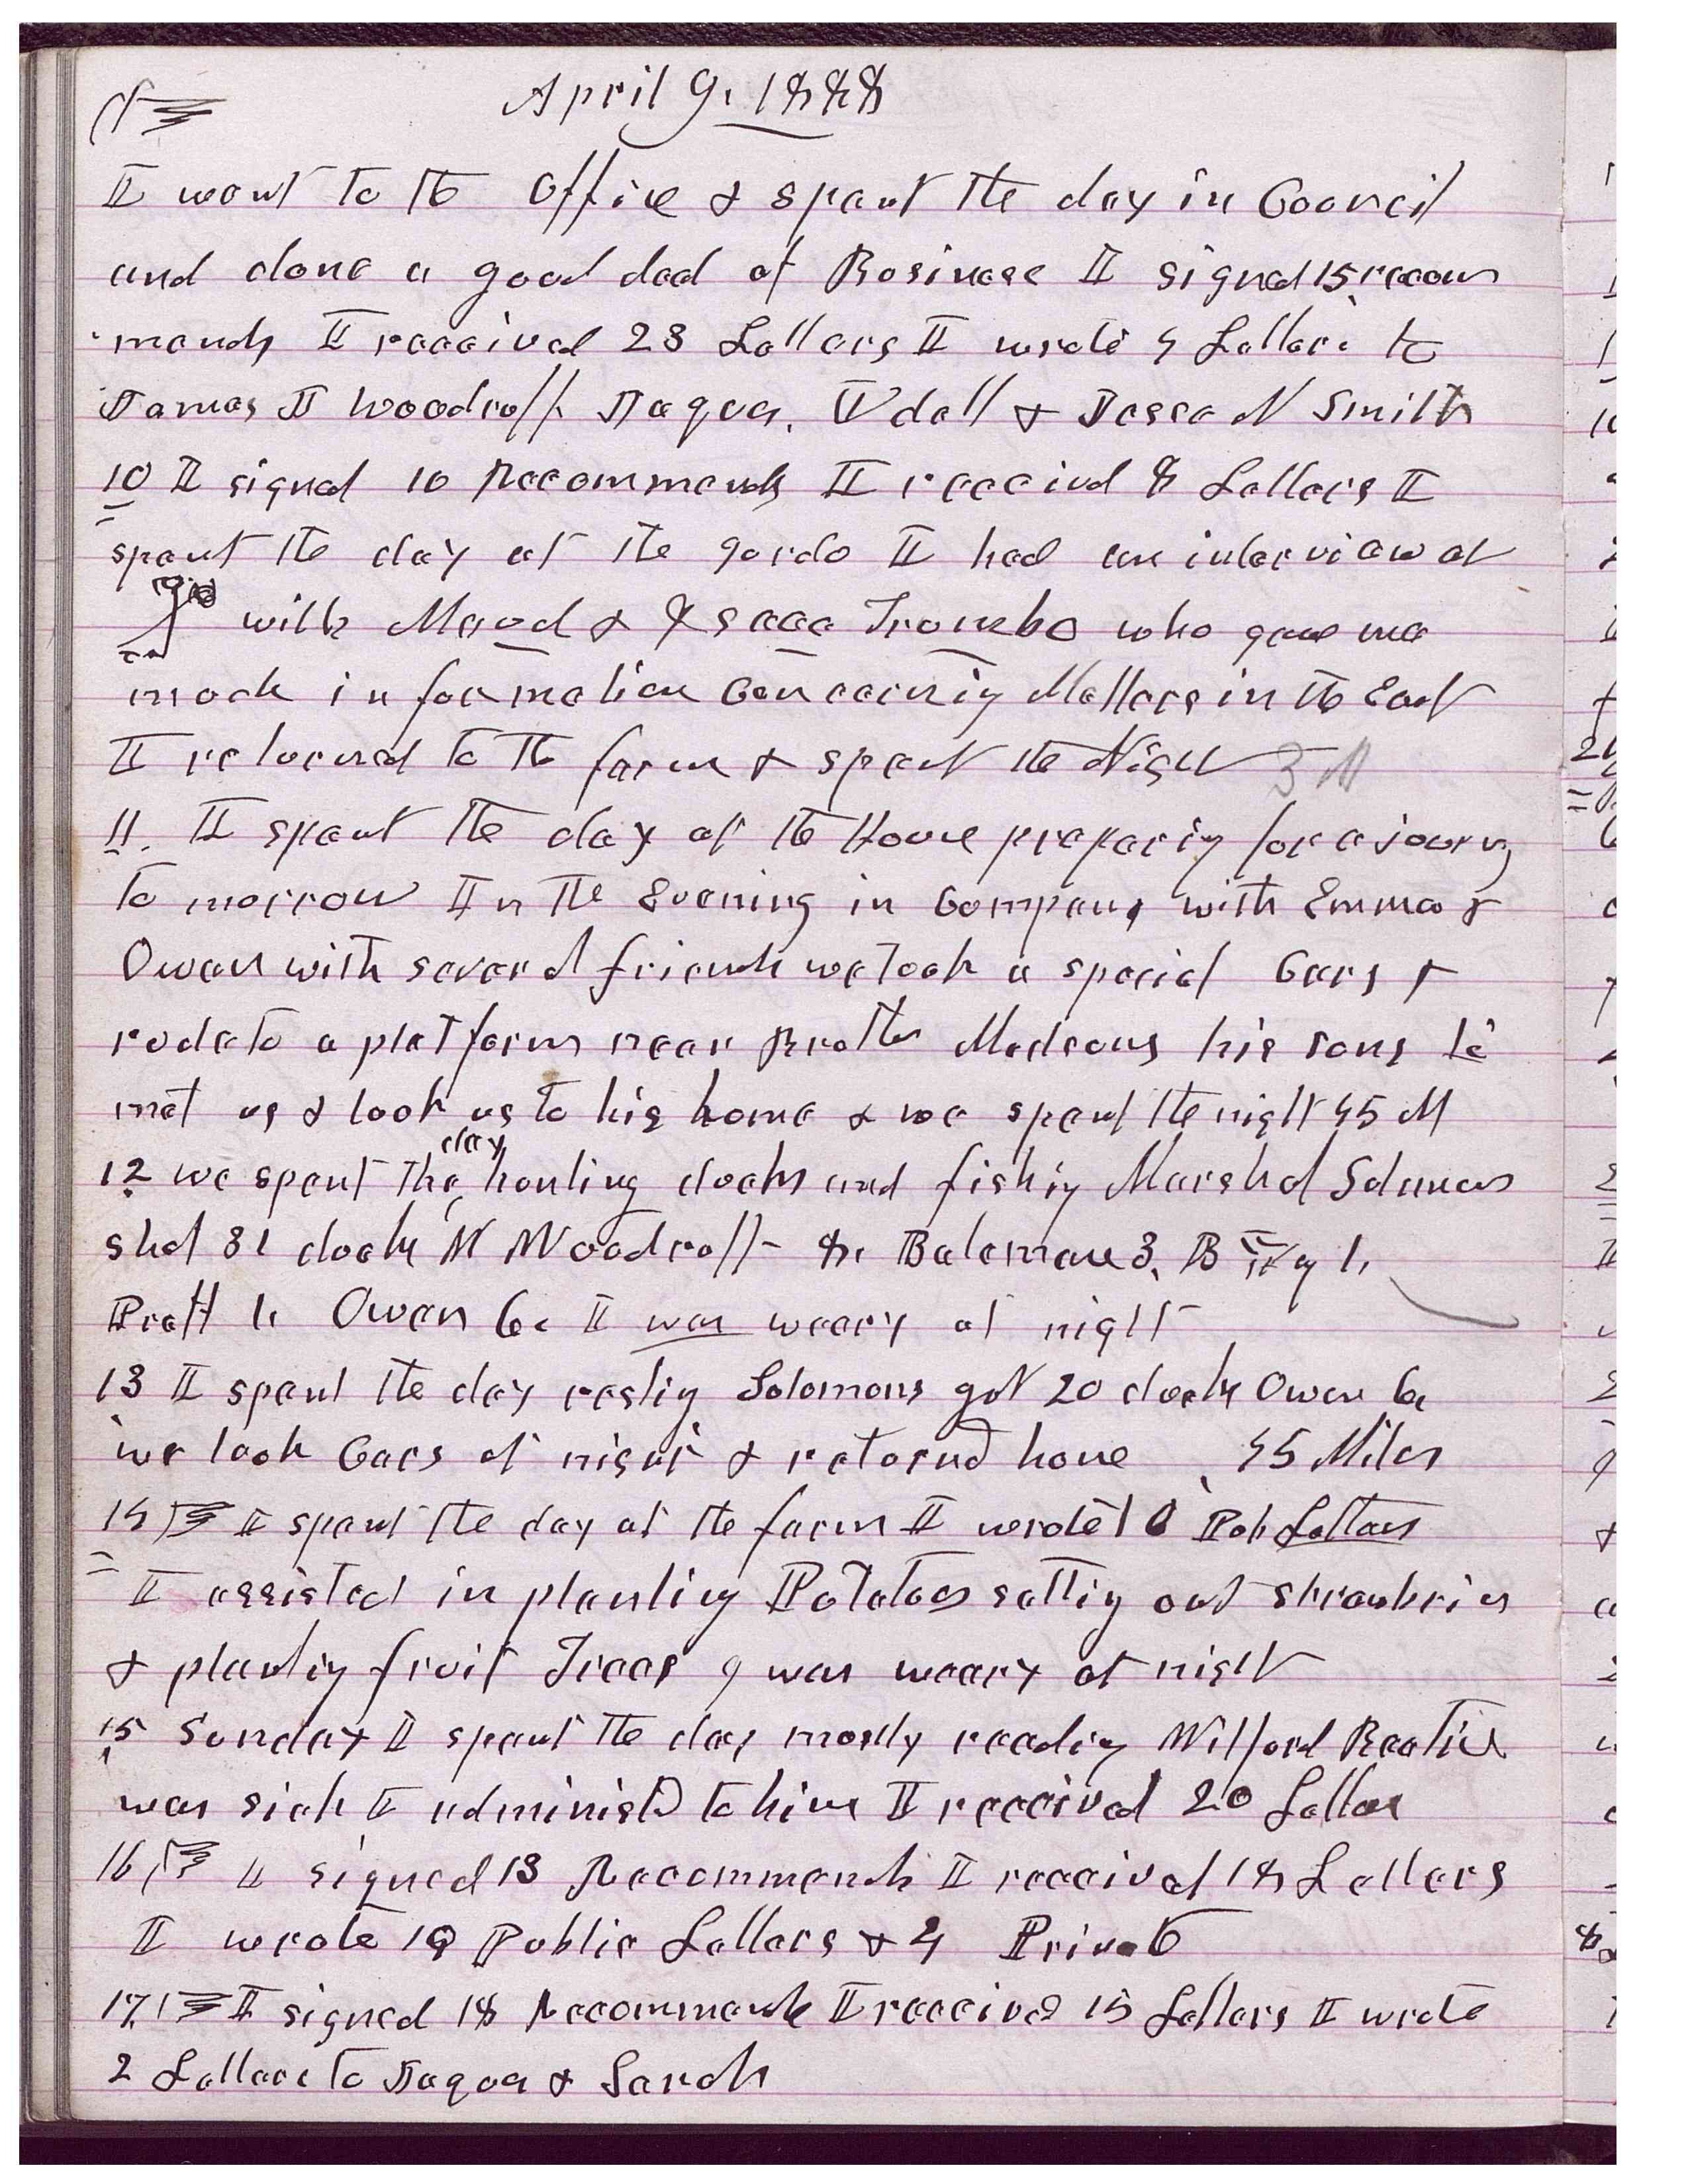 April 9, 1888
I went to the Office & spent the day in Council
and done a good deal of Business I signed 15 recom
mends I received 23 Letters I wrote 4 Letters to
James J Woodruff Jaques, Udall & Jesse N Smith
10 I signed 10 Recommends I received 8 Letters I
spent the day at the gardo I had an interview at
with Maud & Isaac Trombo who gave me
much information Concerning Matters in the East
I returned to the farm & spent the Night 3 M
11. I spent the day at the House preparing for a journy
to morrow In the Evening in Company with Emma &
Owen with several friends we took a special Cars &
rode to a platform near Brother Madsons his sons
met us & took us to his home & we spent the night 45 M
12 we spent the day hunting ducks and fishing Marshal Solomon
shot 31 ducks W Woodruff 8. Bateman 3. B 1.
Pratt 1. Owen 6. I was weary at night
13 I spent the day resting Solomons got 20 ducks Owen 6
we took Cars at night & returnd home 45 Miles
14 I spent the day at the farm I wrote 10 Pub Letters
I assisted in planting Potatoes setting out strawbries
& planting fruit Trees I was weary at night
15 Sunday I spent the day mostly reading Wilford Beatie
was sick I administd to him I received 20 Letters
16 I signed 13 Recommends I received 18 Letters
I wrote 19 Public Letters & 4 Private
17. I signed 18 Recommends I received 15 Letters I wrote
2 Letters to Jaques & Sarah